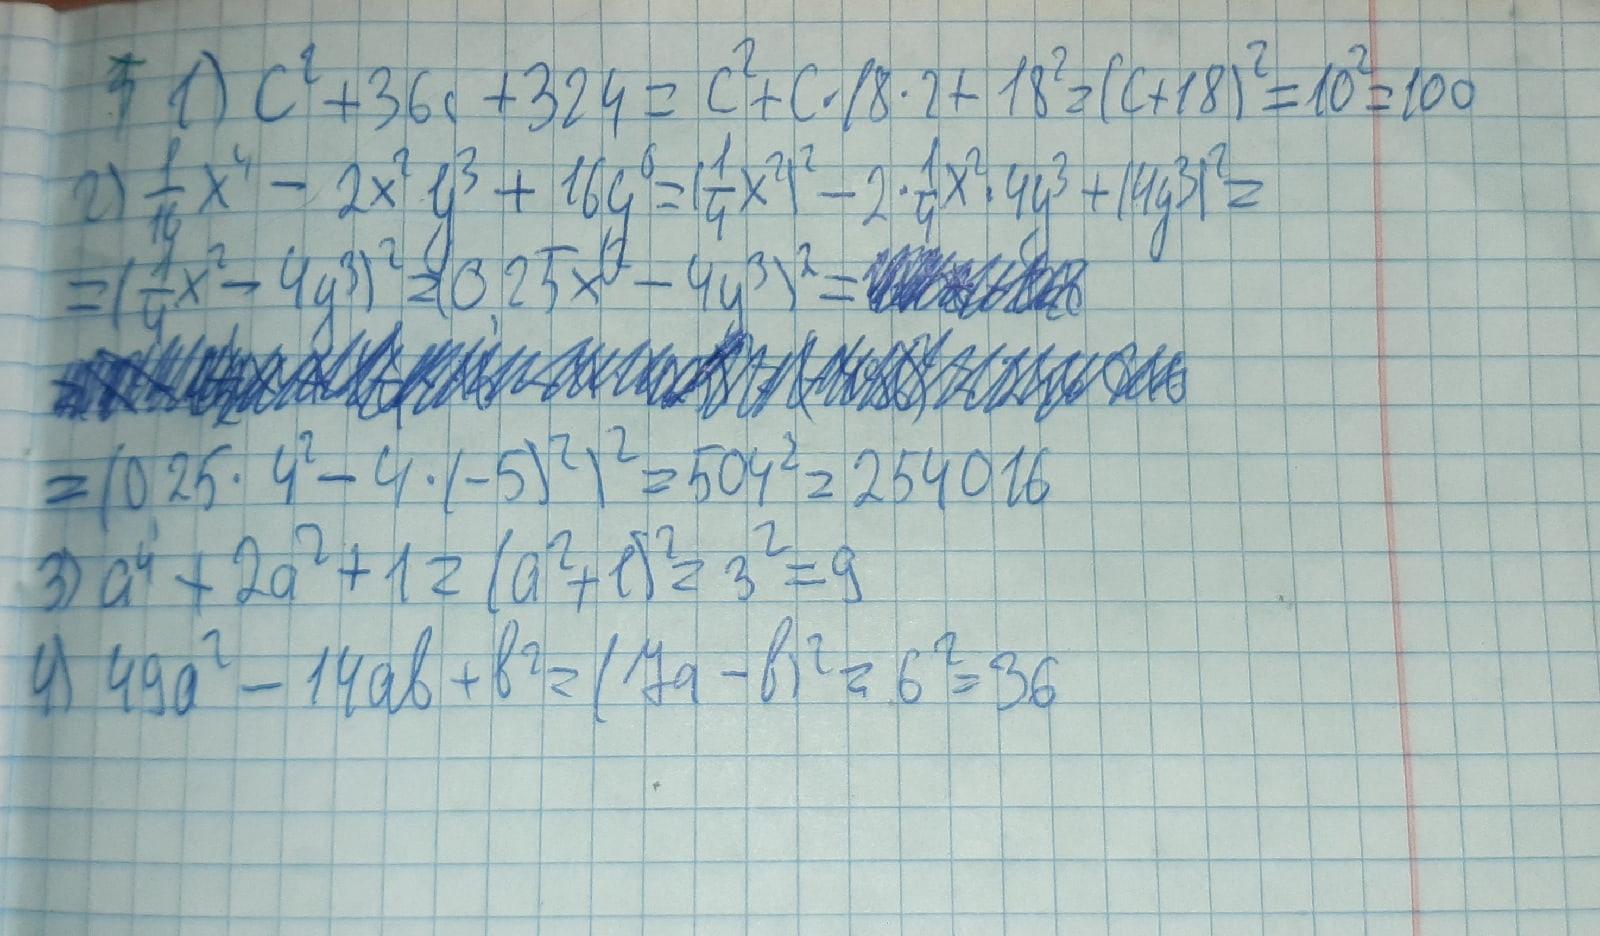 1) c² + 36c + 324 = c² + c · 18 · 2 + 18² = (c+18)² = 10² = 100
2) 1/16 x⁴ - 2x² y³ + 16y⁶ = (1/4 x²)² - 2 · 1/4 x² · 4y³ + (4y³)² =
= (1/4 x² - 4y³)² = (0,25x² - 4y³)² =
= (0,25 · 4² - 4 · (-5)²)² = 504² = 254016
3) a⁴ + 2a² + 1 = (a² + 1)² = 3² = 9
4) 49a² - 14ab + b² = (7a - b)² = 6² = 36